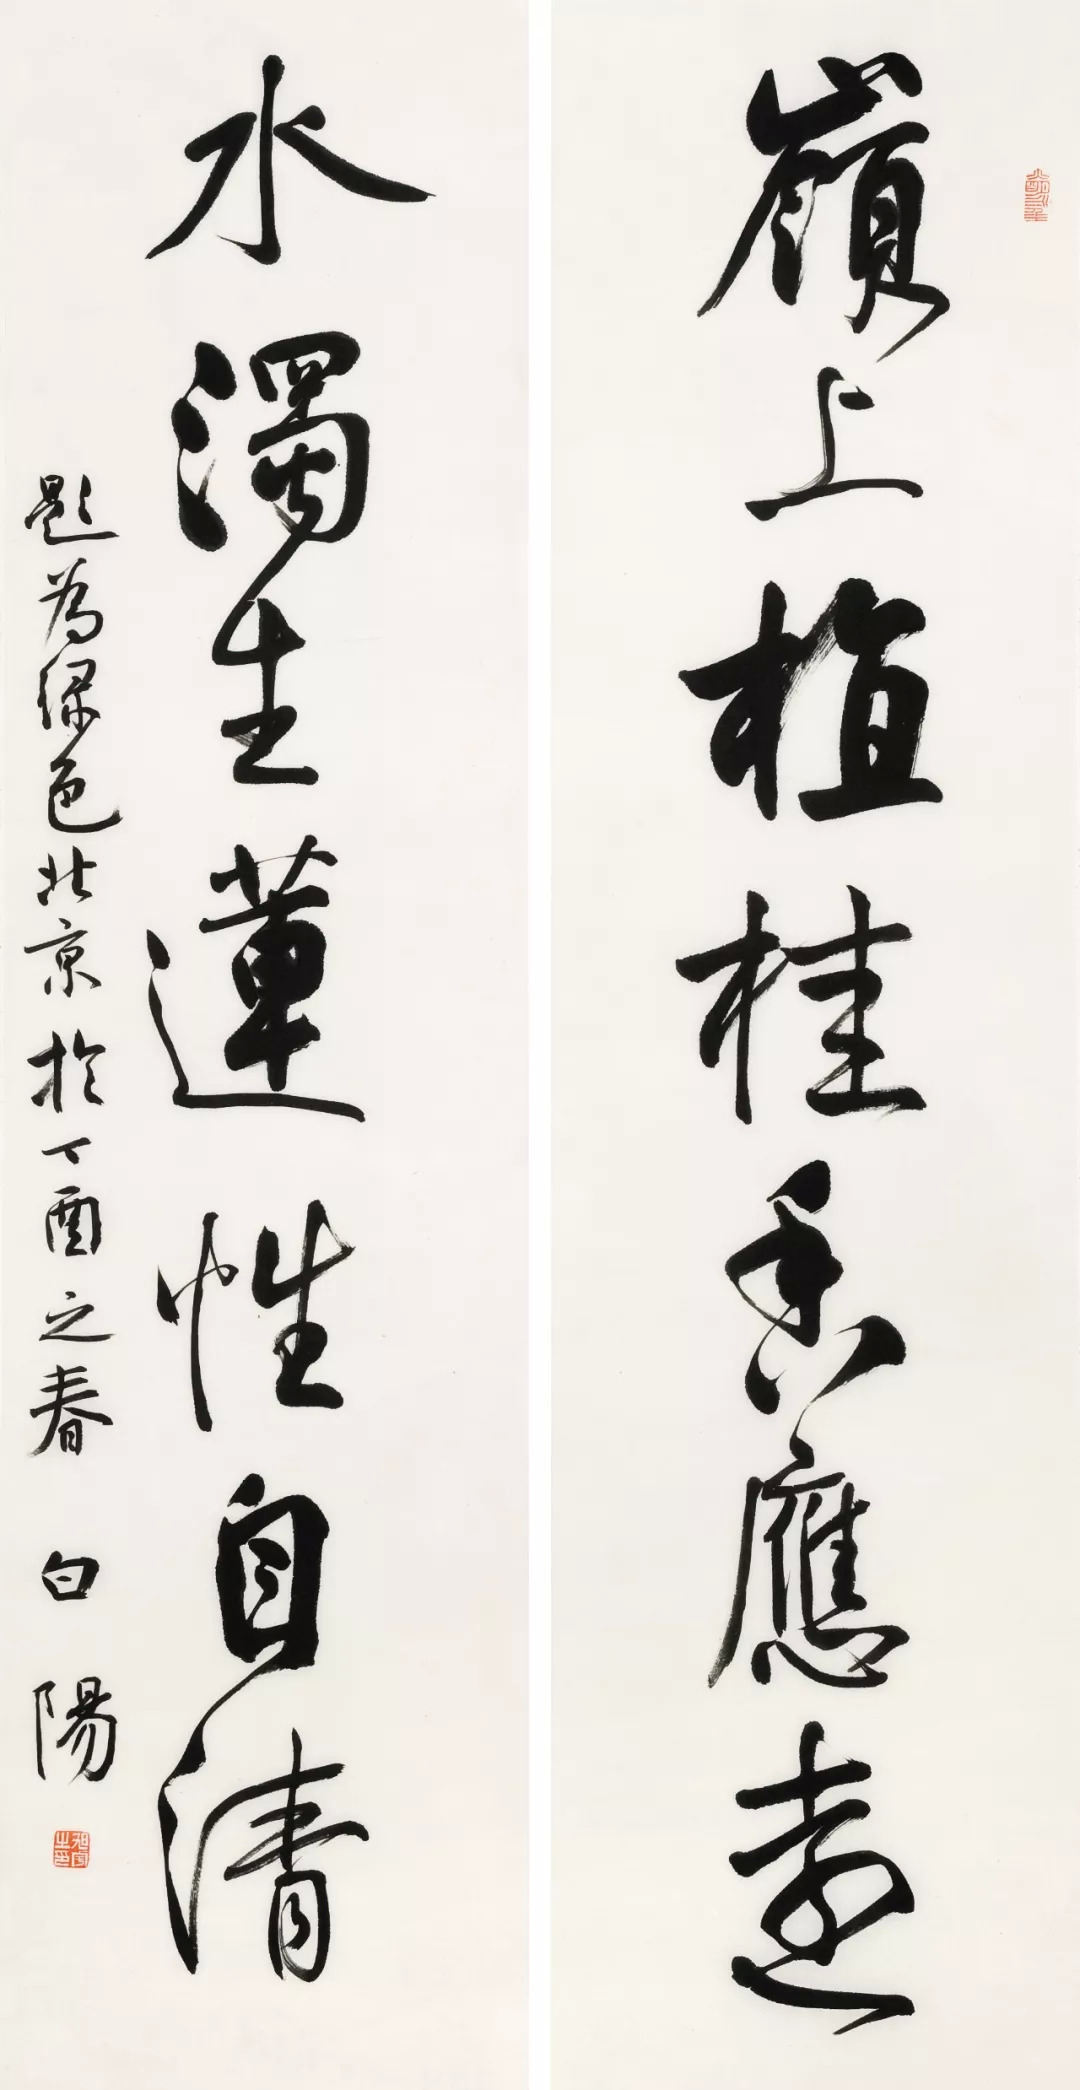 嶺上植桂香應遠
水濁生蓮性自清
題為绿色北京於丁酉之春 白陽